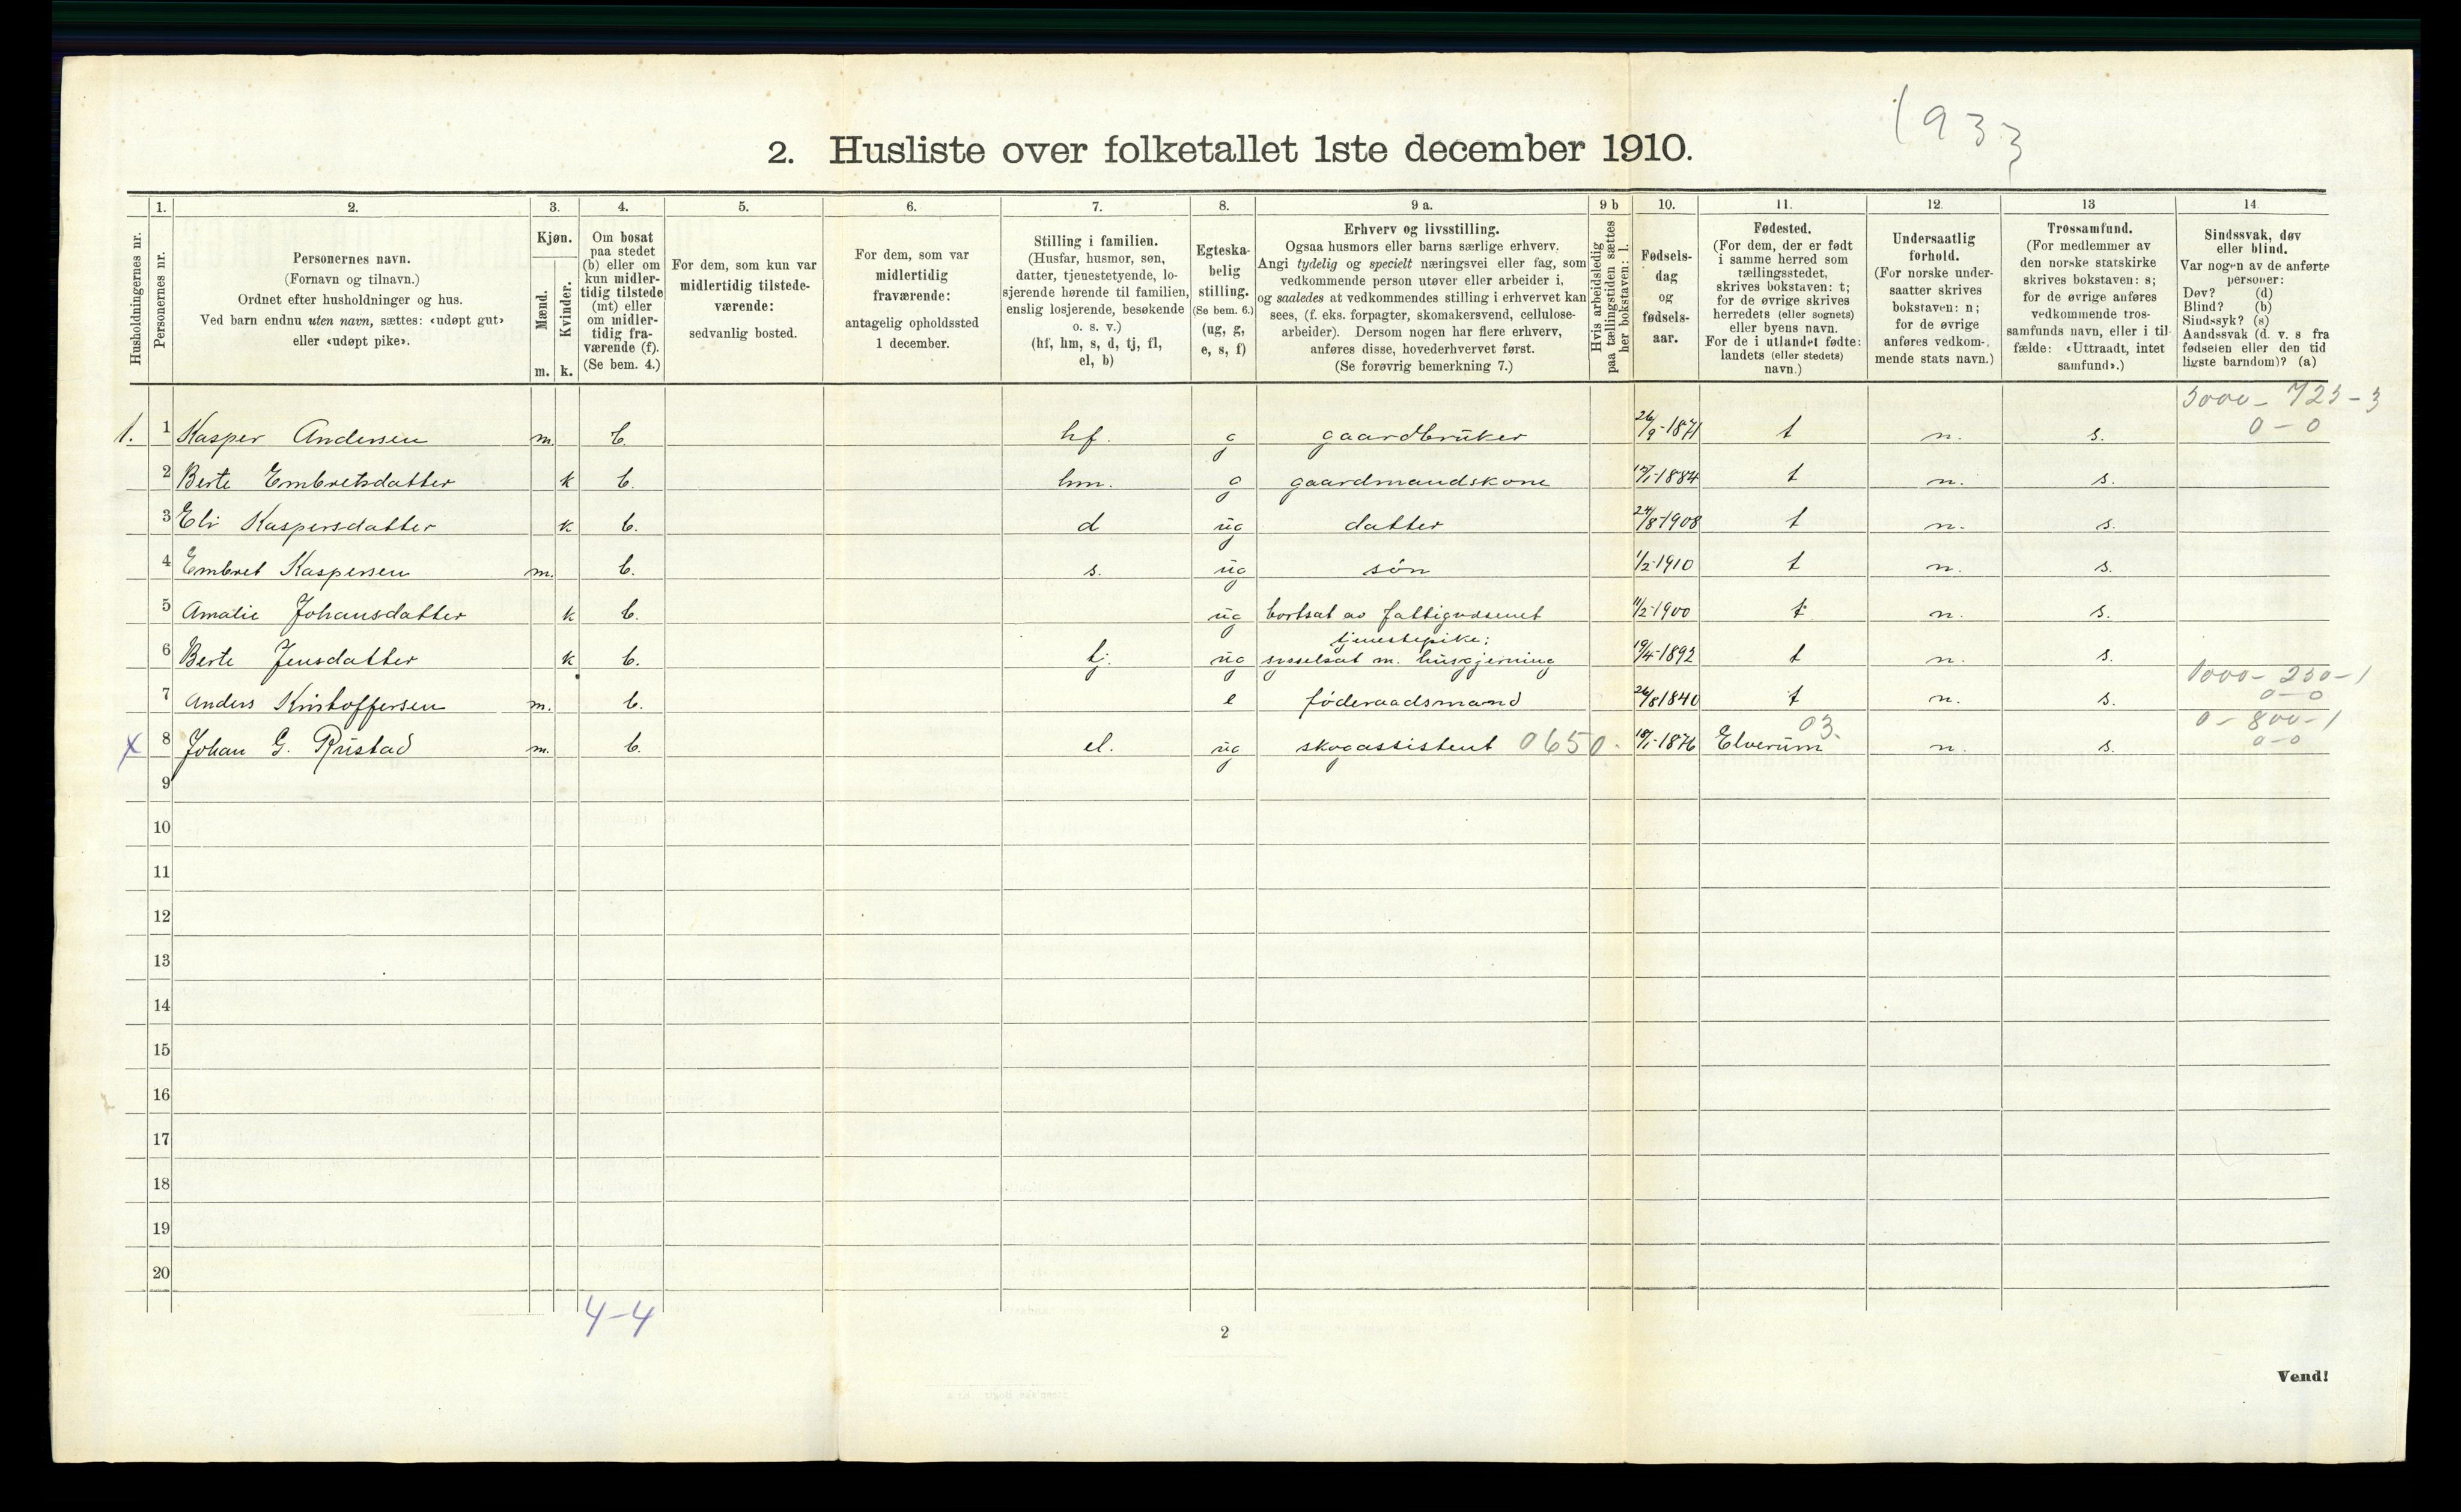 1933
2. Husliste over folketallet 1ste december 1910.
Husholdningernes nr.
1. Personernes nr.
2. Personernes navn. (Fornavn og tilnavn.) Ordnet efter husholdninger og hus. Ved barn endnu uten navn, sættes: «udøpt gut» eller «udøpt pike».
3. Kjøn. Mænd. m. Kvinder. k.
4. Om bosat paa stedet (b) eller om kun midler-tidig tilstede (mt) eller om midler-tidig fra-værende (f). (Se bem. 4.)
5. For dem, som kun var midlertidig tilstede-værende: sedvanlig bosted.
6. For dem, som var midlertidig fraværende: antagelig opholdssted 1 december.
7. Stilling i familien. (Husfar, husmor, søn, datter, tjenestetyende, lo-sjerende hørende til familien, enslig losjerende, besøkende o. s. v.) (hf, hm, s, d, tj, fl, el, b)
8. Egteska-belig stilling. (Se bem. 6.) (ug, g, e, s, f)
9 a. Erhverv og livsstilling. Ogsaa husmors eller barns særlige erhverv. Angi tydelig og specielt næringsvei eller fag, som vedkommende person utøver eller arbeider i, og saaledes at vedkommendes stilling i erhvervet kan sees, (f. eks. forpagter, skomakersvend, cellulose-arbeider). Dersom nogen har flere erhverv, anføres disse, hovederhvervet først. (Se forøvrig bemerkning 7.)
9 b Hvis arbeidsledig paa tællingstiden sættes her bokstaven: l.
10. Fødsels-dag og fødsels-aar.
11. Fødested. (For dem, der er født i samme herred som tællingsstedet, skrives bokstaven: t; for de øvrige skrives herredets (eller sognets) eller byens navn. For de i utlandet fødte: landets (eller stedets) navn.)
12. Undersaatlig forhold. (For norske under-saatter skrives bokstaven: n; for de øvrige anføres vedkom-mende stats navn.)
13 Trossamfund. (For medlemmer av den norske statskirke skrives bokstaven: s; for de øvrige anføres vedkommende tros-samfunds navn, eller i til-fælde: «Uttraadt, intet samfund».)
14 Sindssvak, døv eller blind. Var nogen av de anførte personer: Døv? (d) Blind? (b) Sindssyk? (s) Aandssvak (d. v. s fra fødselen eller den tid ligste barndom)? (a)
3000- 725-3
1. 1 Kasper Andersen m. b. hf. g gaardbruker 26/9-1871 t n. s. 0-0
2 Berte Embretsdatter k b. hm. g gaardmandskone 1884 t n. s.
3 Eli Kaspersdatter k b. d ug datter 24/8-1908 t n. s.
4 Embret Kaspersen m. b. s. ug søn 1/2-1910 t n. s.
5 Amalie Johansdatter k b. ug bortsat av fattigvæsenet 11/2-1900 t n. s.
tjenestepike;
6 Berte Jensdatter k b. tj. ug sysselsat m. husgjerning 19/4-1892 t n. s.
1000- 250-1
7 Anders Kristoffersen m. b. e føderaadsmand 26/8 1840 t n. s. 0-0
03. 0-800-1
x 8 Johan G. Rustad m. b. el. ug skogassistent 0650. 18/1-1876 Elverum n. s. 0-0
9
10
11
12
13
14
15
16
17
18
19
20
4-4
2
Vend!